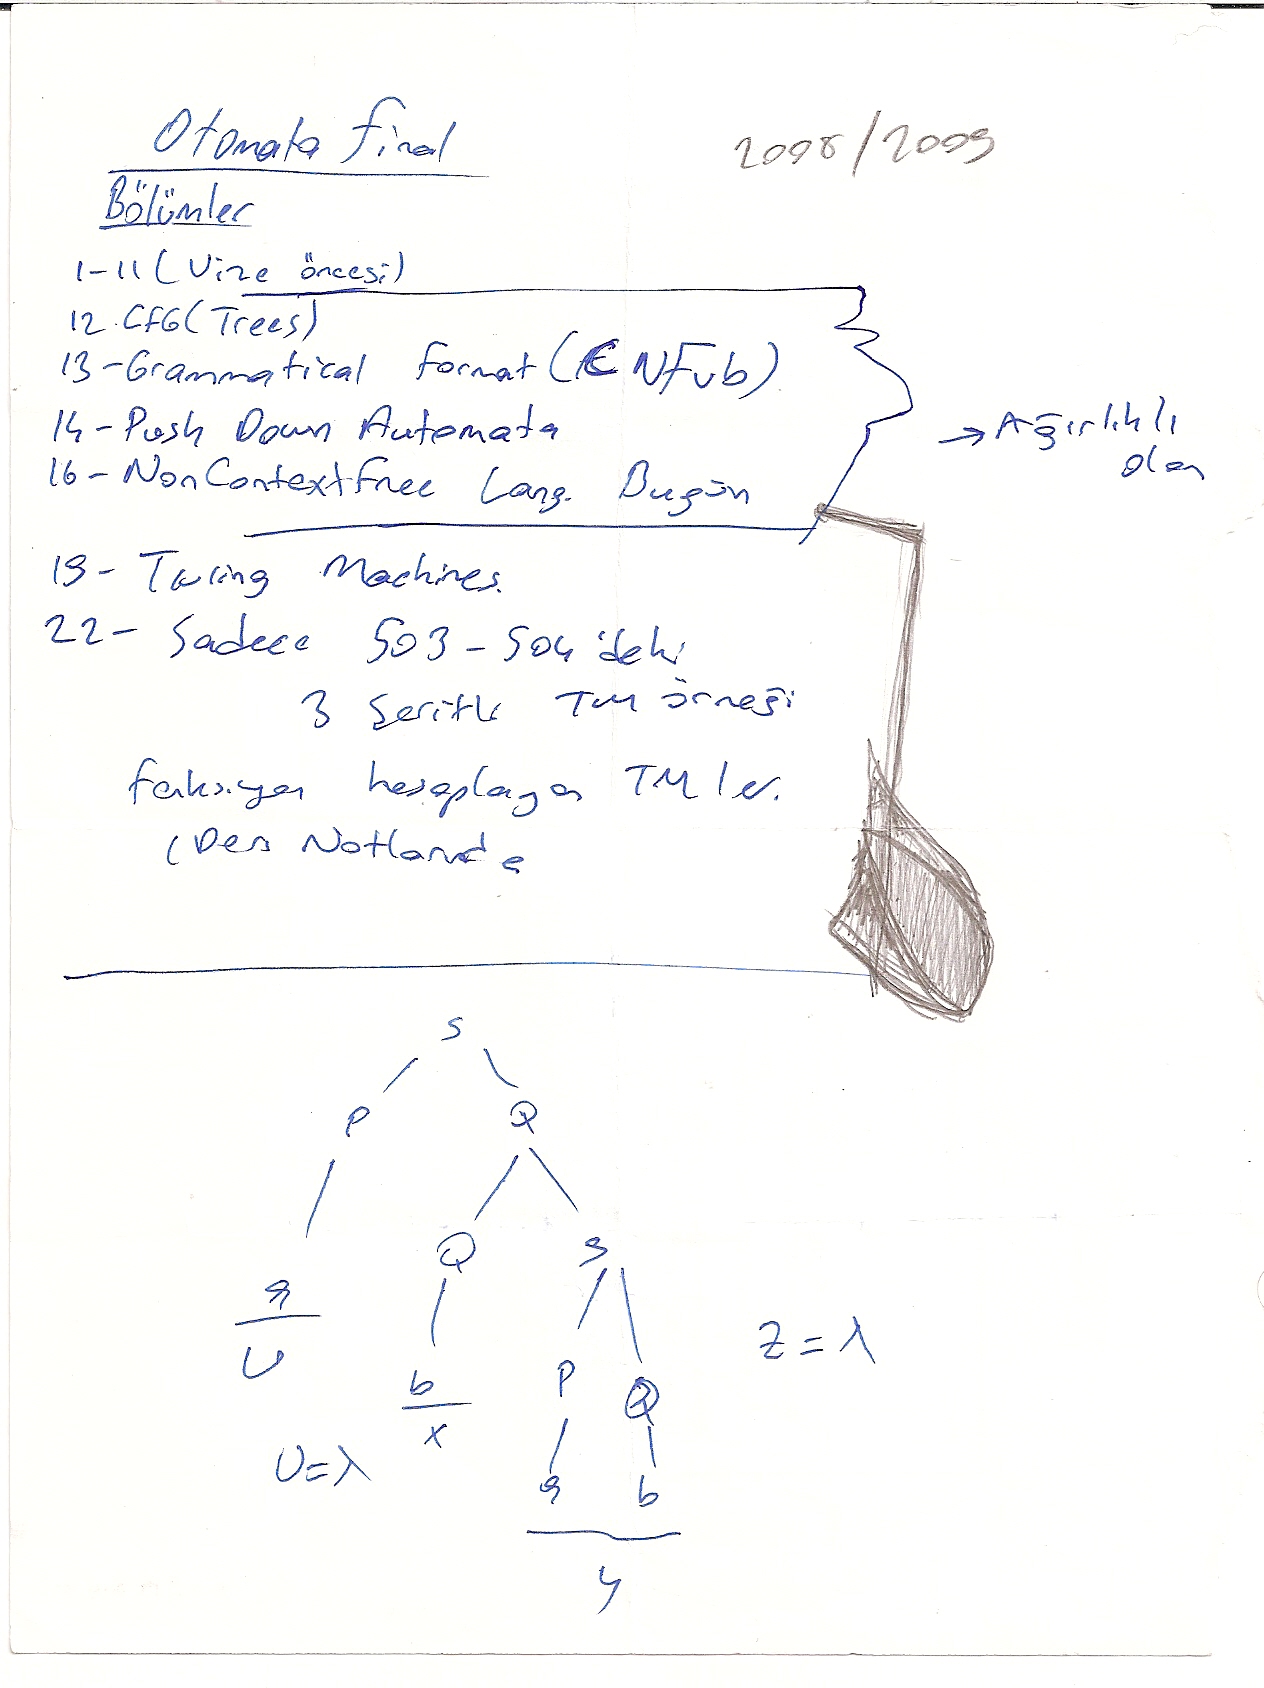 Otomata final
2008/2009
Bölümler
1-11 (Vize öncesi)
12. CFG (Trees)
13-Grammatical format (CNF vb)
14-Push Down Automata
→ Ağırlıklı olan
16-NonContextfree Lang. Bugün
19- Turing Machines.
22- Sadece 503-504'deki
3 şeritli TM örneği
foksiyon hesaplayan TM ler.
(Ders Notlarında
S
P Q
Q S
a
U
Z=λ
b
x
P Q
U=λ
a b
y